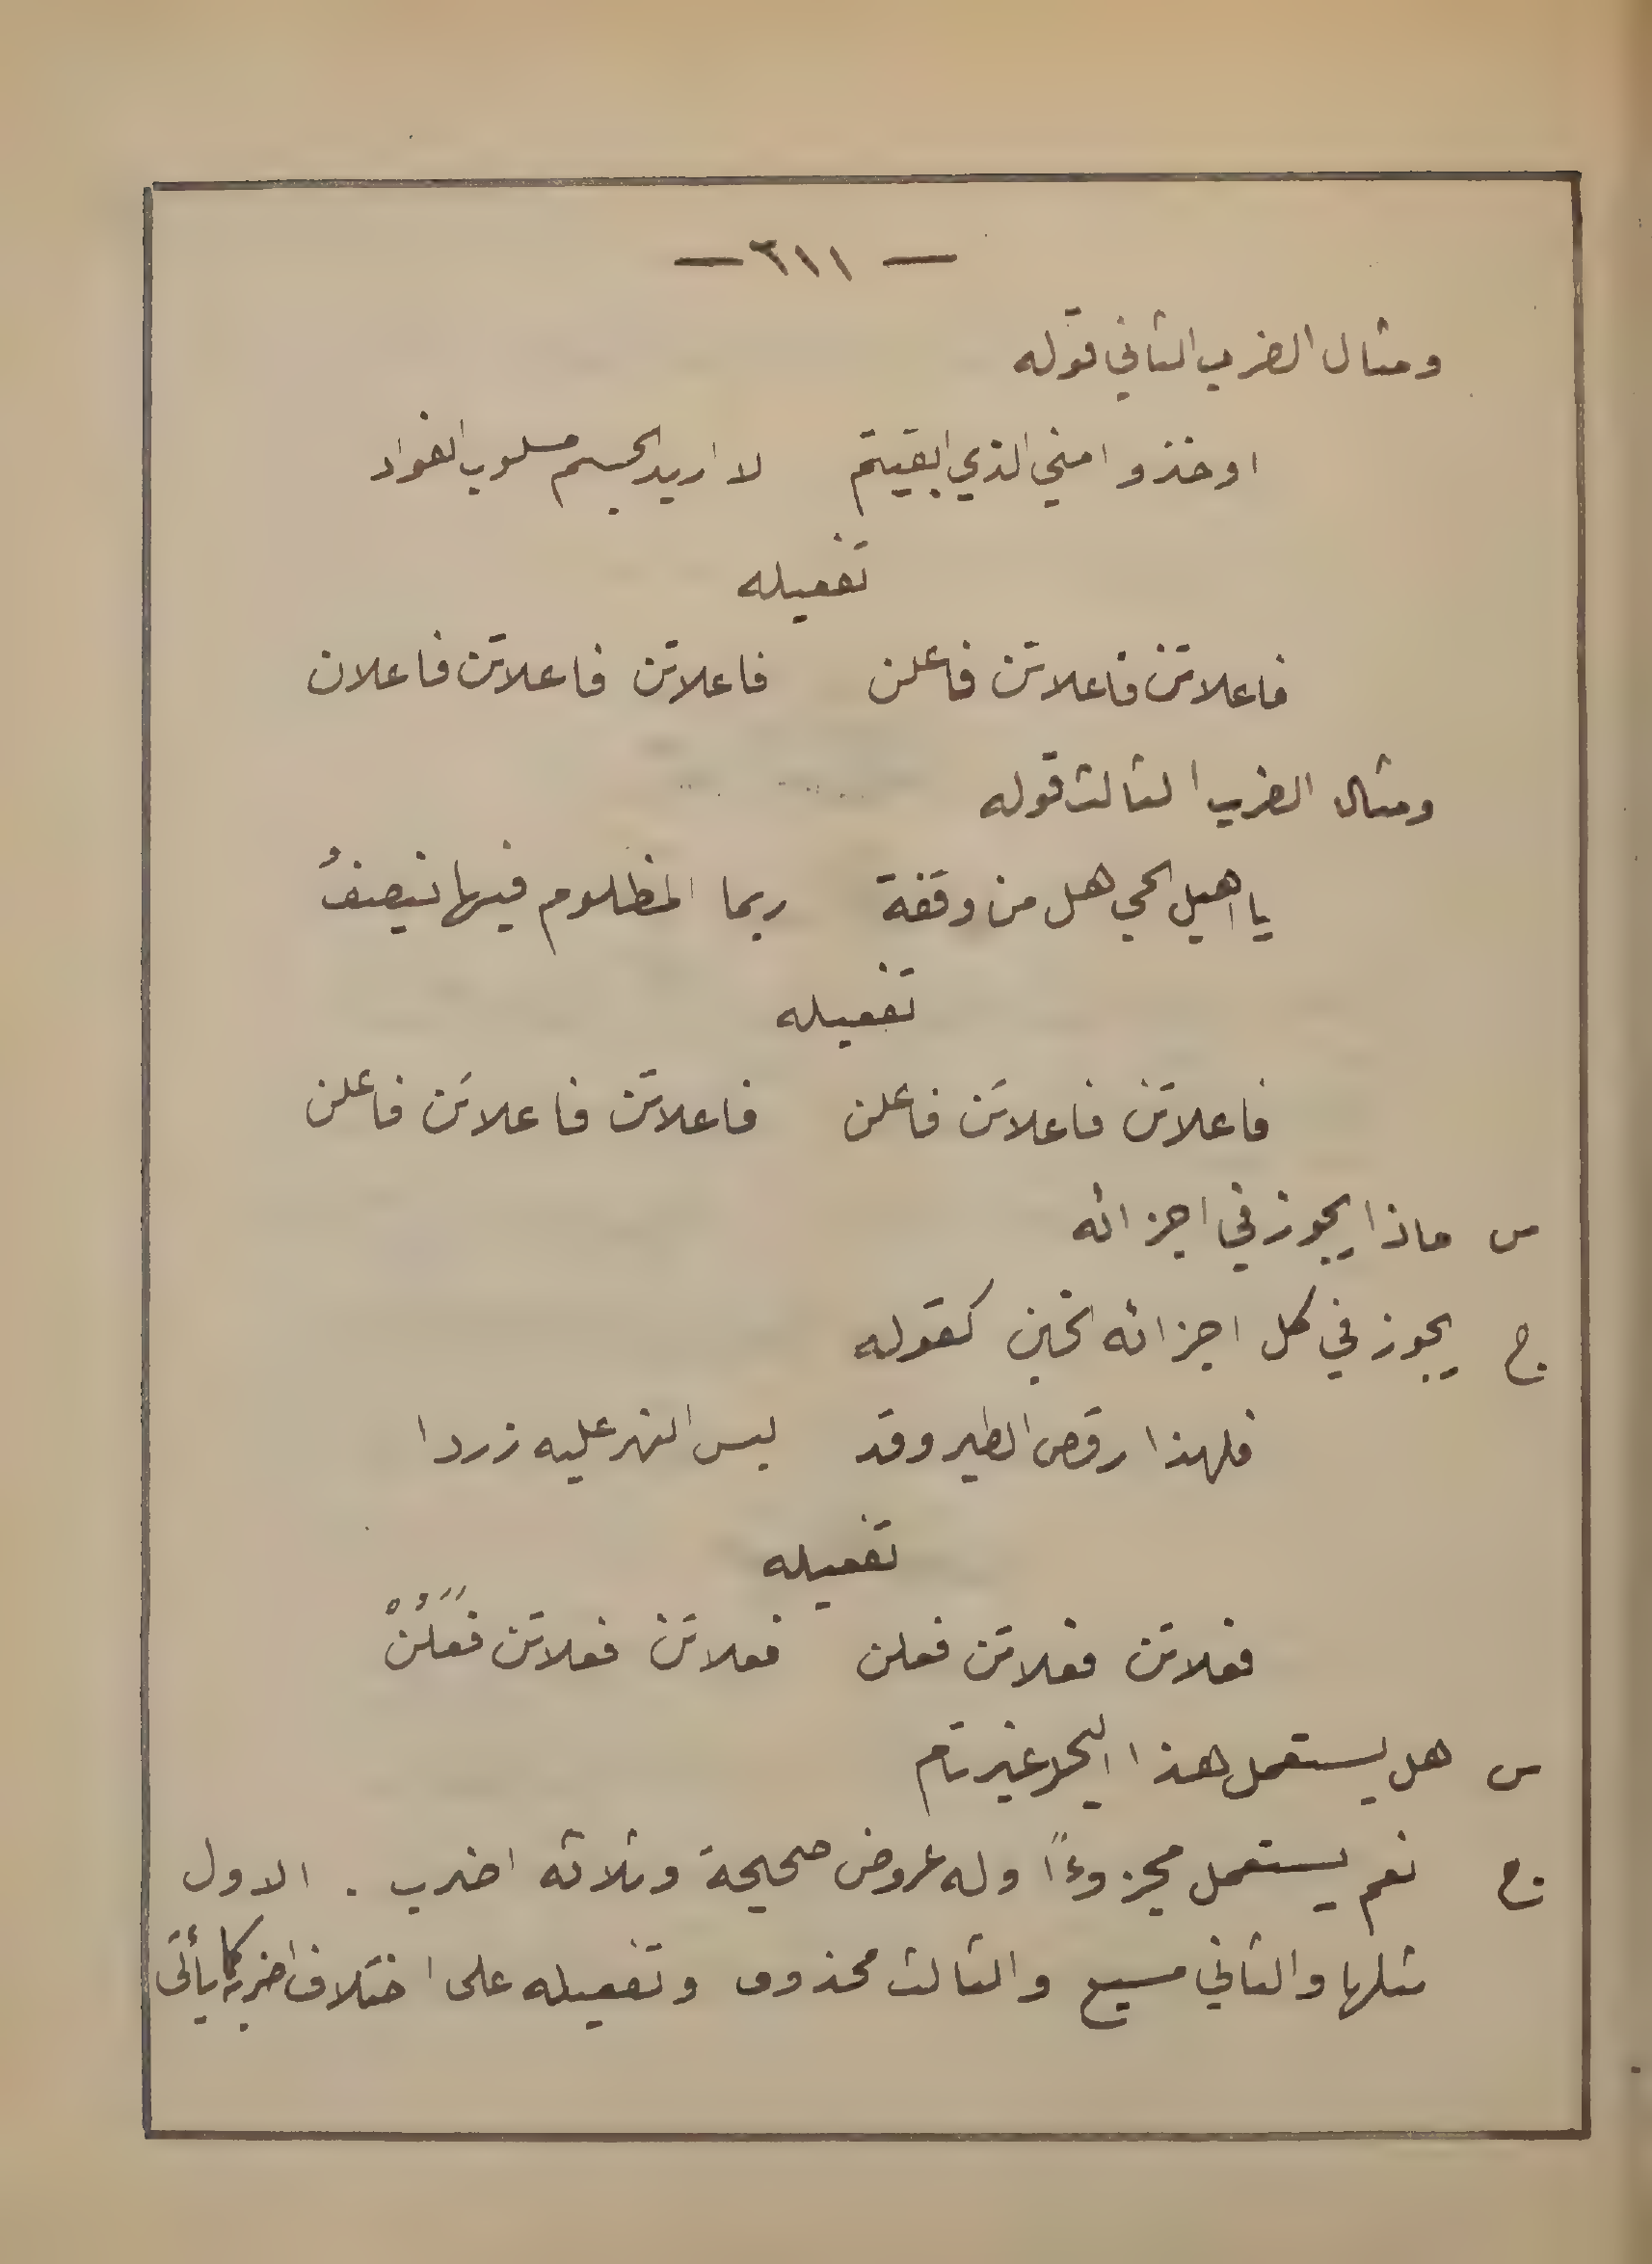 — ٦١١ —
ومثال الضرب الثاني قوله
او خذوا مني الذي ابقيتم لا اريد الجسم مسلوب الفواد
تفعيله
فاعلاتن فاعلاتن فاعلن فاعلاتن فاعلاتن فاعلان
ومثال الضرب الثالث قوله
يا اهيل الحي هل من وقفة ربما المظلوم فيها ينصفُ
تفعيله
فاعلاتن فاعلاتن فاعلن فاعلاتن فاعلاتن فاعلن
س ماذا يجوز في اجزائه
ج يجوز في كل اجزائه الخبن كقوله
فلهذا رقص الطير وقد لبس النهر عليه زردا
تفعيله
فعلاتن فعلاتن فعلن فعلاتن فعلاتن فَعَلُنْ
س هل يستعمل هذا البحر غير تام
ج نعم يستعمل مجزوءًا وله عروض صحيحة وثلاثه اضرب . الاول
مثلها والثاني مسبع والثالث محذوف وتفعيله على اختلاف اضربه كما يأتي